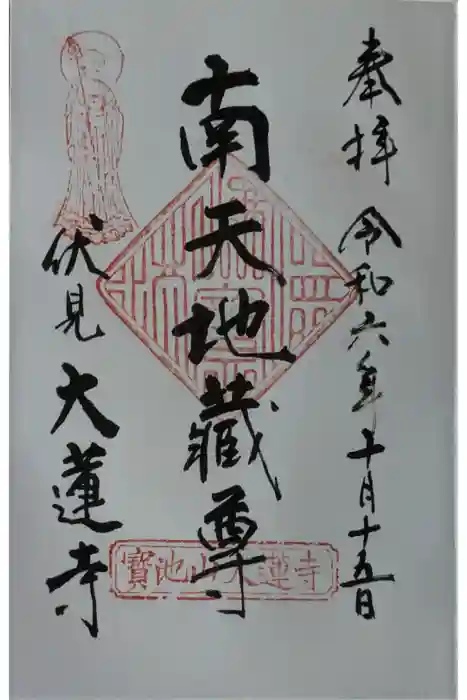 奉拝 令和六年十月十五日
南天地藏尊
伏見 大蓮寺
寶池山大蓮寺